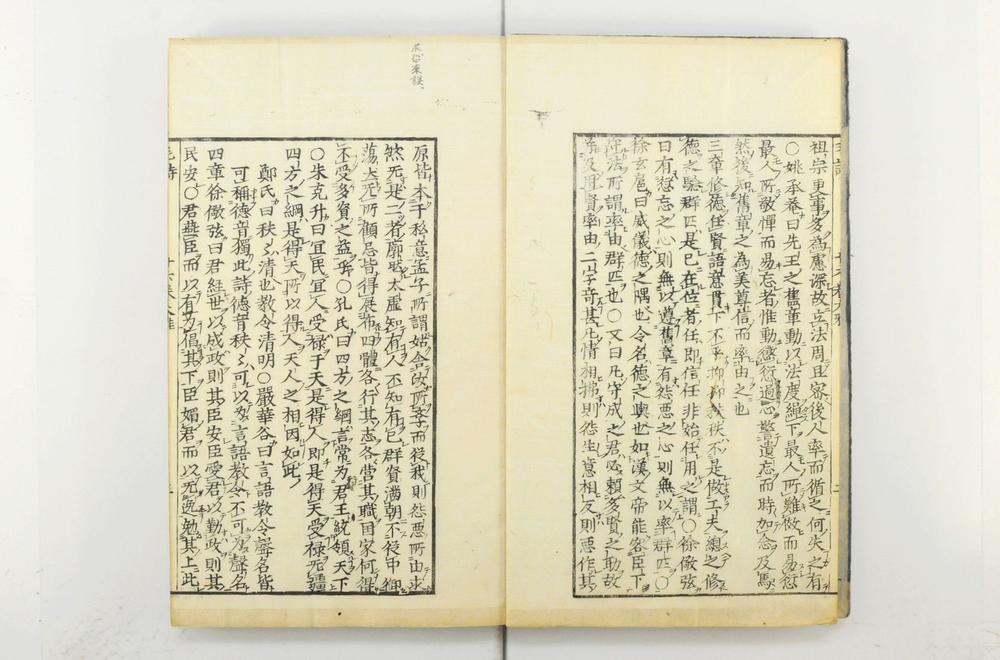 祖宗更事多為慮深故立法周且密後人率而循之何失之有
○姚承菴曰先王之舊章動以法度繩下最人所難做而易愆
最人所敬憚而易忘者惟動愆愆過忘警遺忘而時加念及焉
然後知舊章之為美尊信而率由之也
三章修德任賢語意貫下不平抑抑秩秩不是做工夫總之修
德之驗群匹是已在位者任即信任非始任用之謂○徐儆弦
曰有愆忘之心則無以遵舊章有怨惡之心則無以率群匹○
徐玄扈曰威儀德之隅也令名德之輿也如漢文帝能容臣下
守法所謂率由群匹也○又曰凡守成之君必賴多賢之助故
及賢率由二字奇甚凡情相拂則怨生意相反則惡作其
原皆本于私意孟子所謂姑舍女所學而從我則怨惡所由
然无是二者廓然太虛知有人不知有已群賢滿朝不
蕩无所顧忌皆得展布四體各行其志各營其職国家何得
不受多賢之益乎○孔氏曰四方之綱言常為君王統領天下
○朱克升曰宜民宜人受禄于天是得人即是得天受禄无疆
四方之綱是得天所以得人天人之相因如此
鄭氏曰秩々清也教令清明○嚴華谷曰言語教令聲名皆
可稱德音獨此詩德音秩々可以為言語教令不可為聲名
四章徐儆弦曰君經世以成政則其臣安臣愛君以勤政則其
民安○君燕臣而以有為倡其下臣媚君而以无逸勉其上此